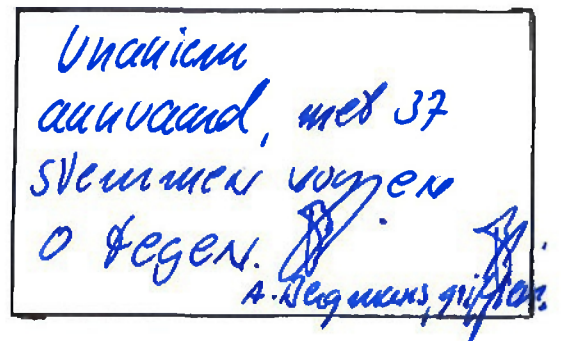 Unaniem
aanvaard, met 37
stemmen voor en
0 tegen.
A. Bergmans, griffier.